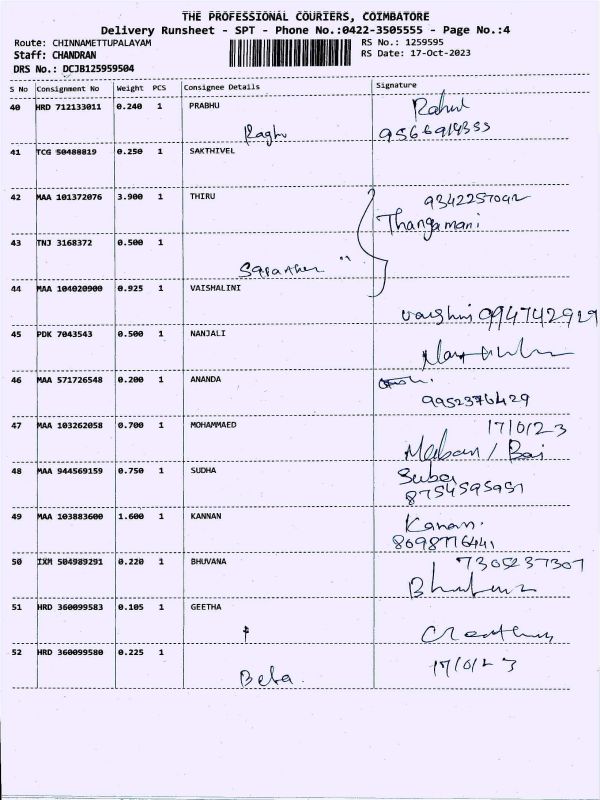 THE PROFESSIONAL COURIERS, COIMBATORE
Delivery Runsheet - SPT - Phone No.:0422-3505555 - Page No.:4
Route: CHINNAMETTUPALAYAM
RS No.: 1259595
Staff: CHANDRAN
RS Date: 17-Oct-2023
DRS No.: DCJB125959504
S No Consignment No Weight PCS Consignee Details Signature
40 HRD 712133011 0.240 1 PRABHU Rahul
Raghu
41 TCG 50488819 0.250 1 SAKTHIVEL
42 MAA 101372076 3.900 1 THIRU 9342257092
Thangamani
43 TNJ 3168372 0.500 1
44 MAA 104020900 0.925 1 VAISHALINI
Vaishini 9947742929
45 PDK 7043543 0.500 1 NANJALI
46 MAA 571726548 0.200 1 ANANDA
9952376429
47 MAA 103262058 0.700 1 MOHAMMAED 17/0/23
/ Bai
48 MAA 944569159 0.750 1 SUDHA Suba
8754595951
49 MAA 103883600 1.600 1 KANNAN Kanan.
8098776441
50 IXM 504989291 0.220 1 BHUVANA 7305237307
51 HRD 360099583 0.105 1 GEETHA
52 HRD 360099580 0.225 1 17/0/23
Beta.